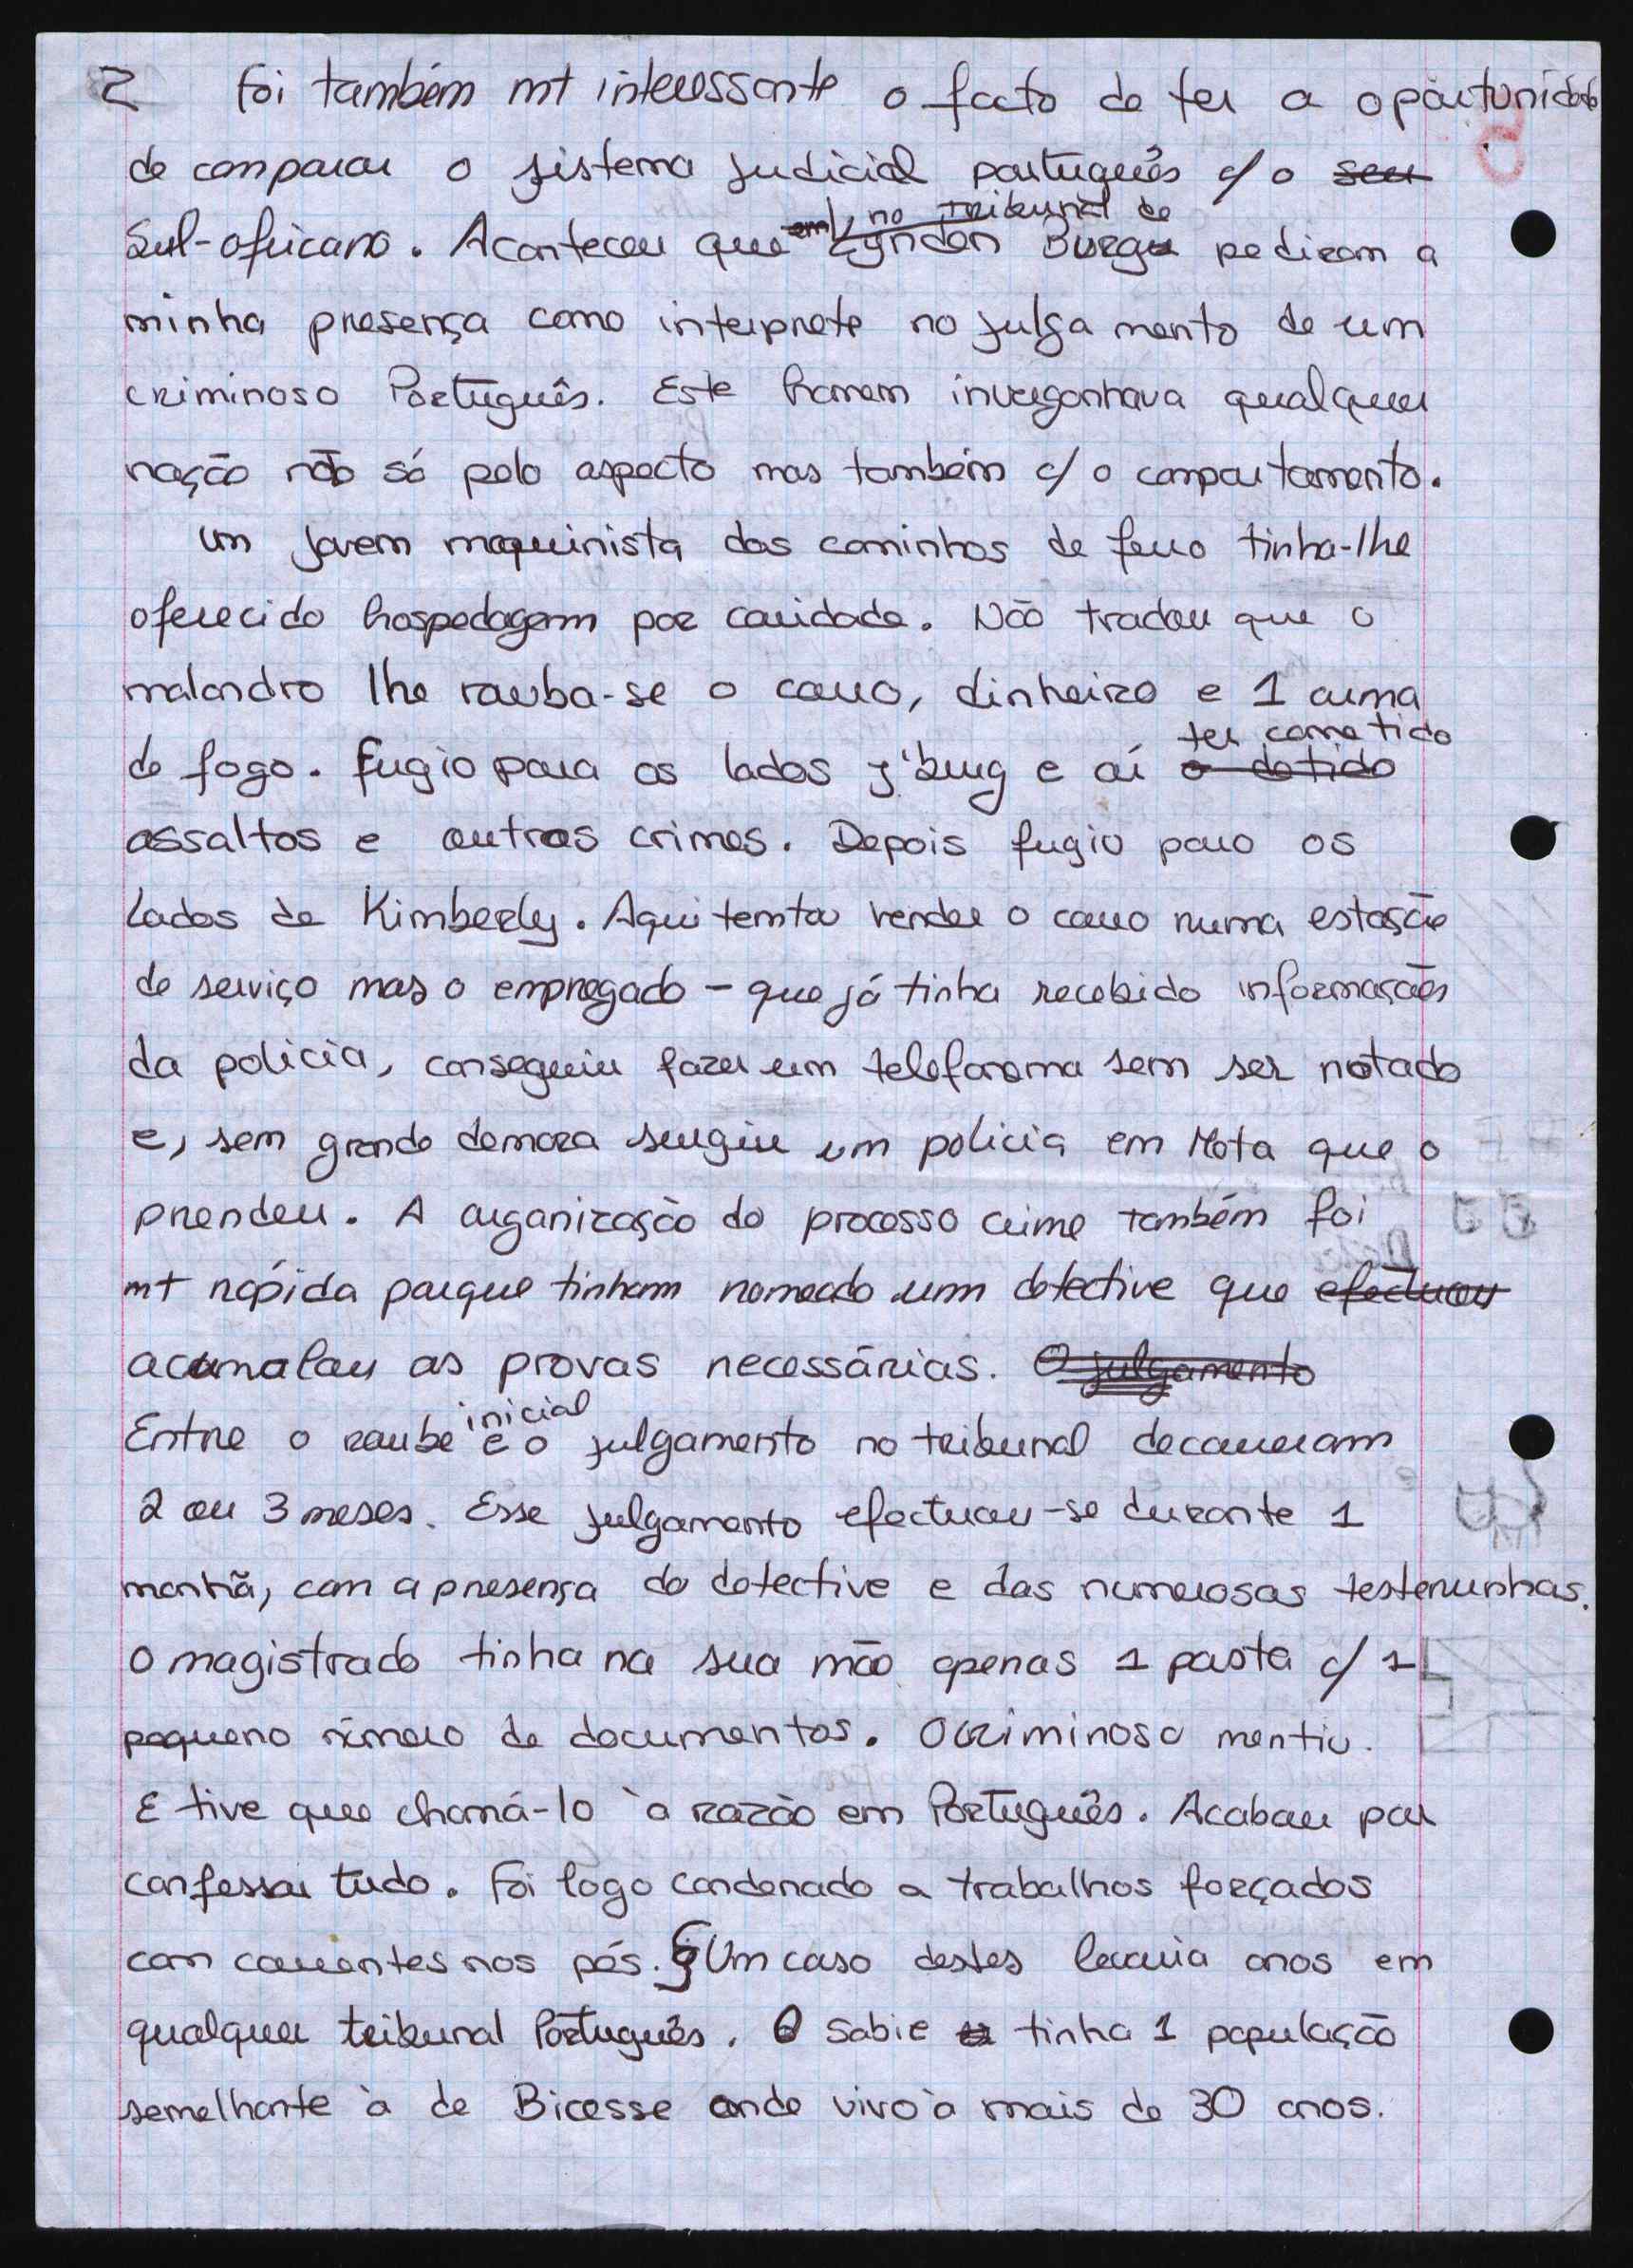 2 Foi também mt interessante o facto de ter a oportunidade
de comparar o sistema judicial português c/ o seu
em no tribunal de
Sul-africano. Aconteceu que Lyndon Burgu pediram a
minha presença como interprete no julgamento de um
criminoso Português. Este homem invergonhava qualquer
nação não só pelo aspecto mas também c/ o comportamento.
Um jovem maquinista dos caminhos de ferro tinha-lhe
oferecido hospedagem por caridade. Não tradou que o
malandro lhe rouba-se o carro, dinheiro e 1 arma
ter cometido
de fogo. Fugio para os lados J'burg e aí o detido
assaltos e outros crimes. Depois fugio para os
lados de Kimberly. Aqui temtou vender o carro numa estação
de serviço mas o empregado - que já tinha recebido informações
da policia, conseguiu fazer um telefonema sem ser notado
e, sem grande demora surgiu um policia em Mota que o
prendeu. A organização do processo crime também foi
mt rápida porque tinham nomeado um detective que efectuou
acumalou as provas necessárias. O julgamento
inicial
Entre o roubo e o julgamento no tribunal decorreram
2 ou 3 meses. Esse julgamento efectuou-se durante 1
manhã, com a presença do detective e das numerosas testemunhas.
O magistrado tinha na sua mão apenas 1 pasta c/ 1
pequeno número de documentos. O criminoso mentiu.
E tive que chamá-lo à razão em Português. Acabou por
confessar tudo. Foi logo condenado a trabalhos forçados
com correntes nos pés. § Um caso destes levaria anos em
qualquer tribunal Português. O Sabie tinha 1 população
semelhante à de Bicesse onde vivo à mais de 30 anos.